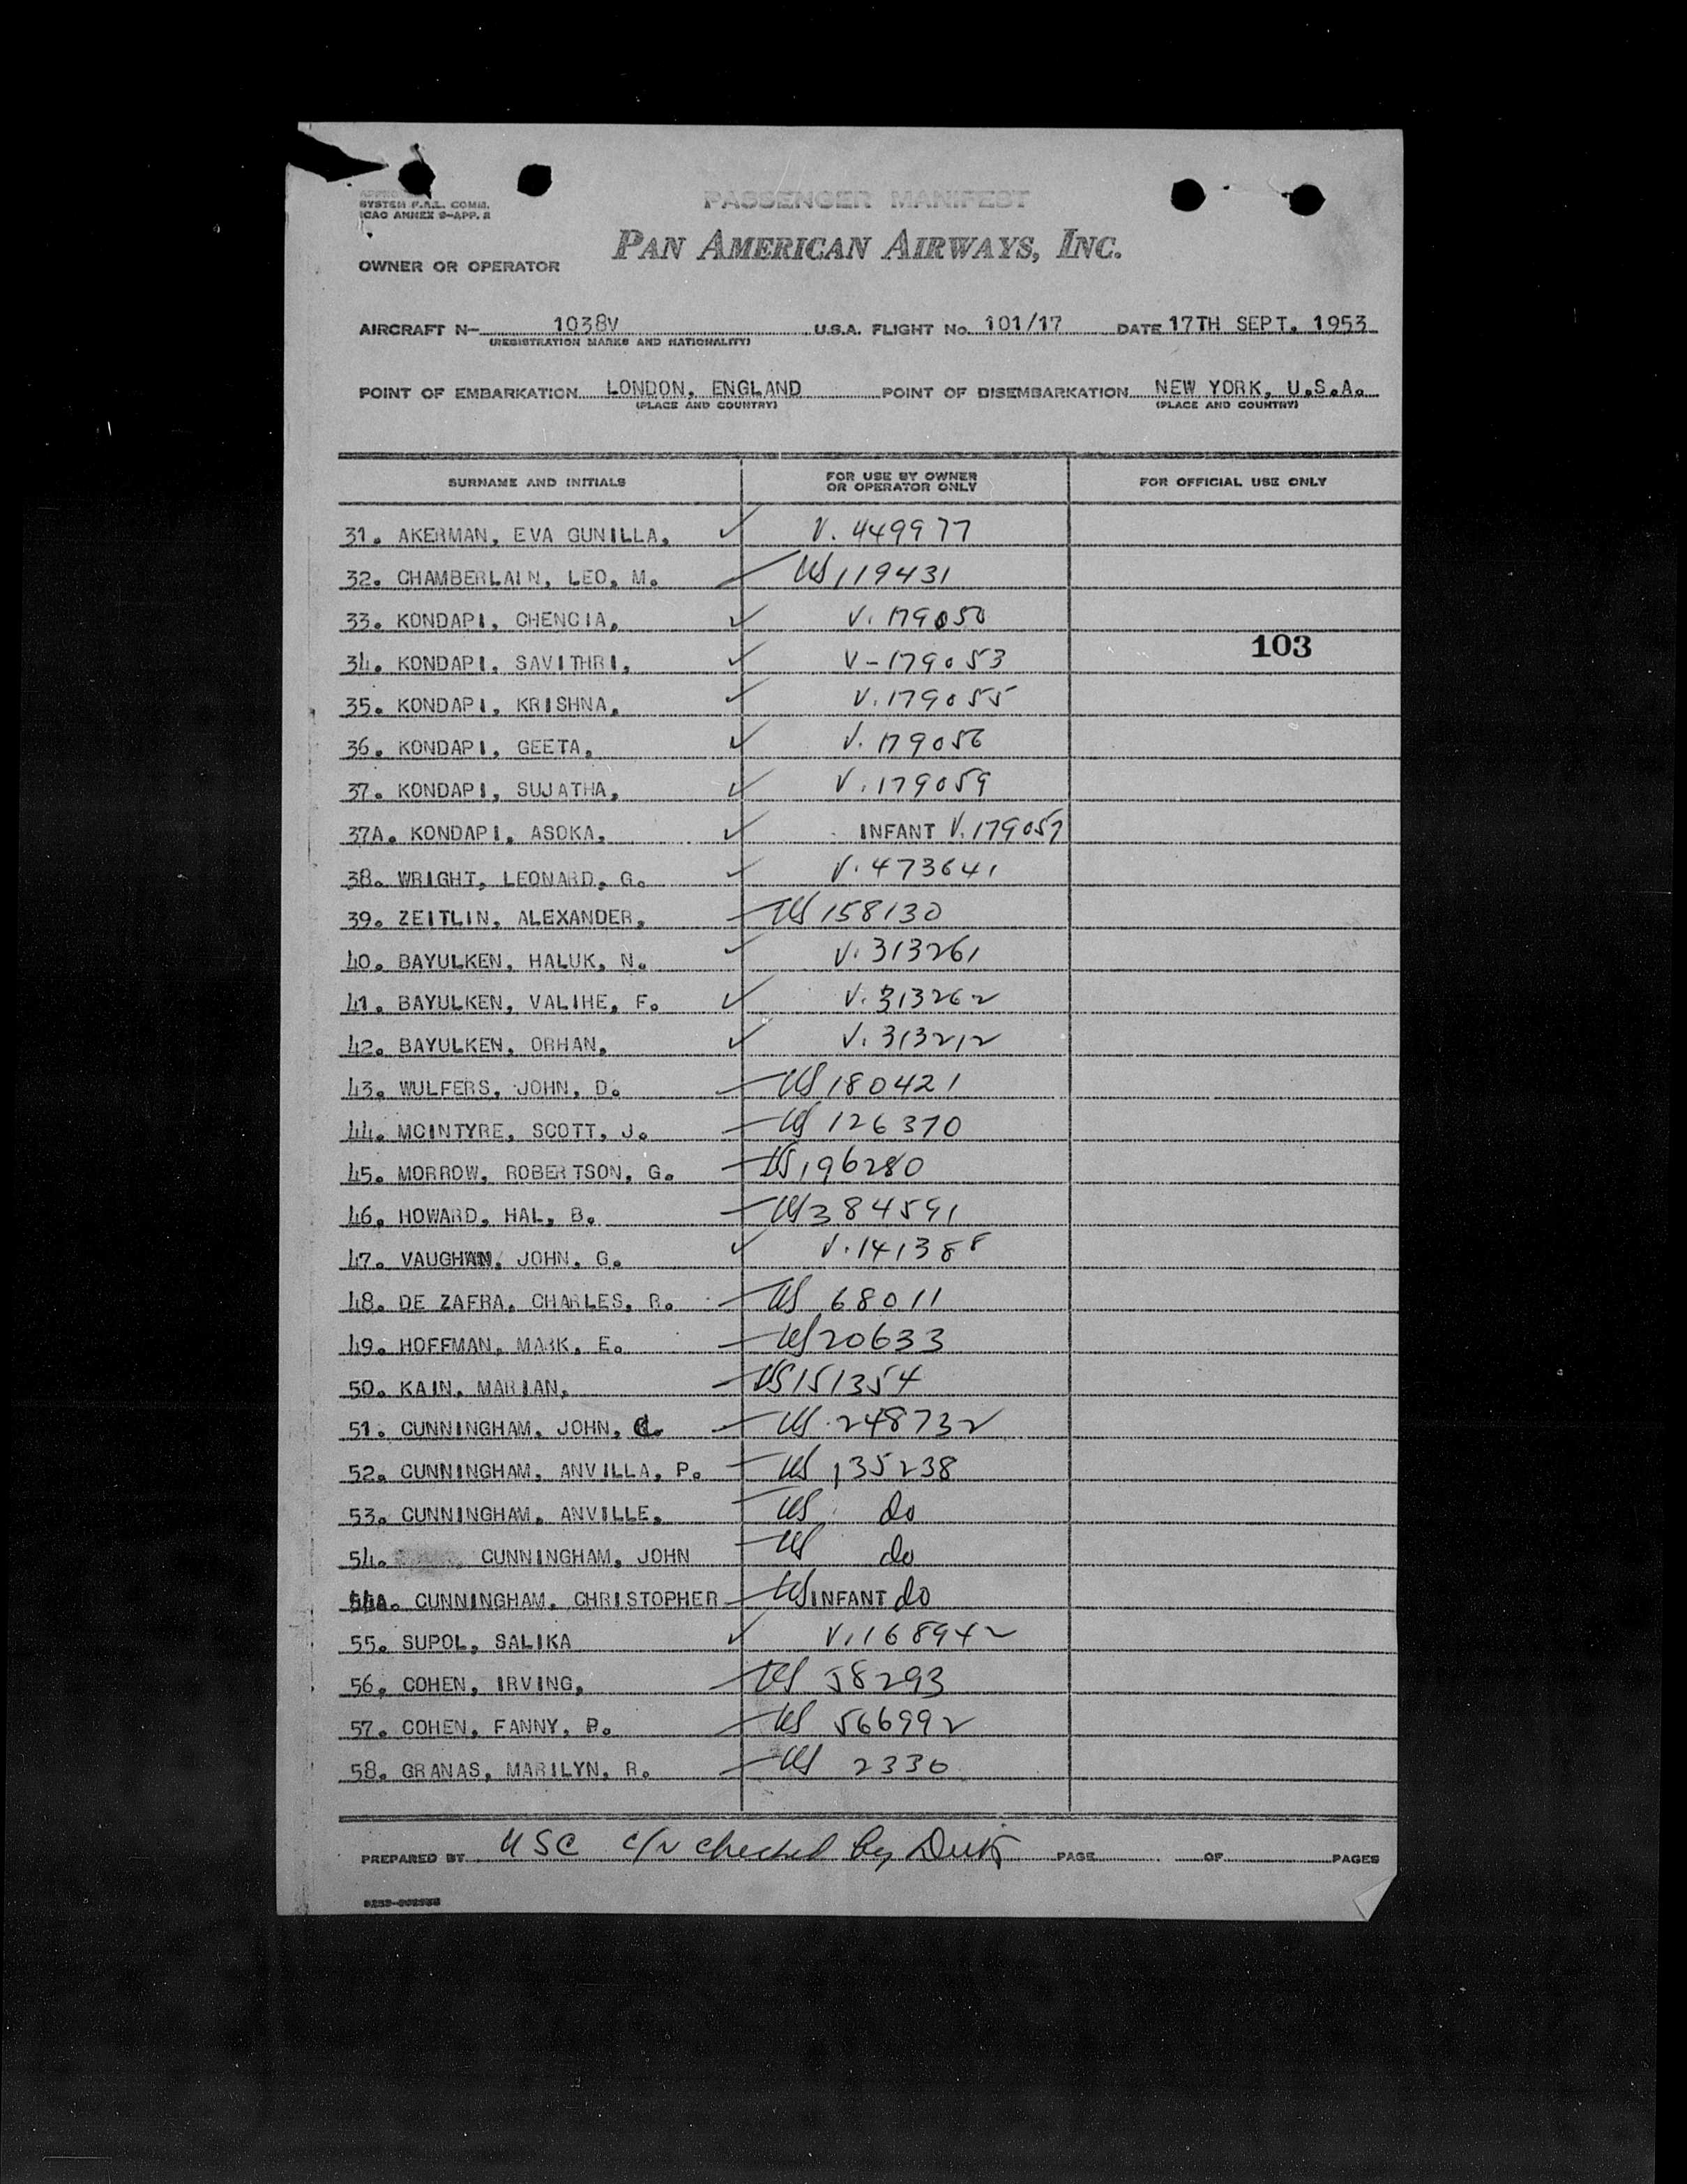 PASSENGER MANIFEST
SYSTEM F.A.L. COMM.
ICAO ANNEX 9-APP. 2
PAN AMERICAN AIRWAYS, INC.
OWNER OR OPERATOR
AIRCRAFT N- 1038V U.S.A. FLIGHT No. 101/17 DATE 17TH SEPT. 1953
(REGISTRATION MARKS AND NATIONALITY)
POINT OF EMBARKATION LONDON, ENGLAND POINT OF DISEMBARKATION NEW YORK, U.S.A.
(PLACE AND COUNTRY) (PLACE AND COUNTRY)
SURNAME AND INITIALS FOR USE BY OWNER OR OPERATOR ONLY FOR OFFICIAL USE ONLY
31. AKERMAN, EVA GUNILLA, ✓ V. 449977
32. CHAMBERLAIN, LEO, M. US 119431
33. KONDAPI, CHENCIA, ✓ V. 179050
103
34. KONDAPI, SAVITHRI, ✓ V-179053
35. KONDAPI, KRISHNA, ✓ V. 179055
36. KONDAPI, GEETA, ✓ V. 179056
37. KONDAPI, SUJATHA, ✓ V. 179059
37A. KONDAPI, ASOKA, ✓ INFANT V. 179057
38. WRIGHT, LEONARD, G. ✓ V. 473641
39. ZEITLIN, ALEXANDER, US 158130
40. BAYULKEN, HALUK, N. ✓ V. 313261
41. BAYULKEN, VALIHE, F. ✓ V. 313262
42. BAYULKEN, ORHAN, ✓ V. 313212
43. WULFERS, JOHN, D. US 180421
44. MCINTYRE, SCOTT, J. US 126370
45. MORROW, ROBERTSON, G. US 196280
46. HOWARD, HAL, B. US 384591
47. VAUGHAN, JOHN, G. ✓ V. 141388
48. DE ZAFRA, CHARLES, R. US 68011
49. HOFFMAN, MARK, E. US 20633
50. KAIN, MARIAN, US 151354
51. CUNNINGHAM, JOHN, C. US 248732
52. CUNNINGHAM, ANVILLA, P. US 135238
53. CUNNINGHAM, ANVILLE, US do
54. CUNNINGHAM, JOHN US do
54A. CUNNINGHAM, CHRISTOPHER US INFANT do
55. SUPOL, SALIKA ✓ V. 168942
56. COHEN, IRVING, US 58293
57. COHEN, FANNY, P. US 566992
58. GRANAS, MARILYN, R. US 2336
PREPARED BY USC c/n checked by PAGE OF PAGES